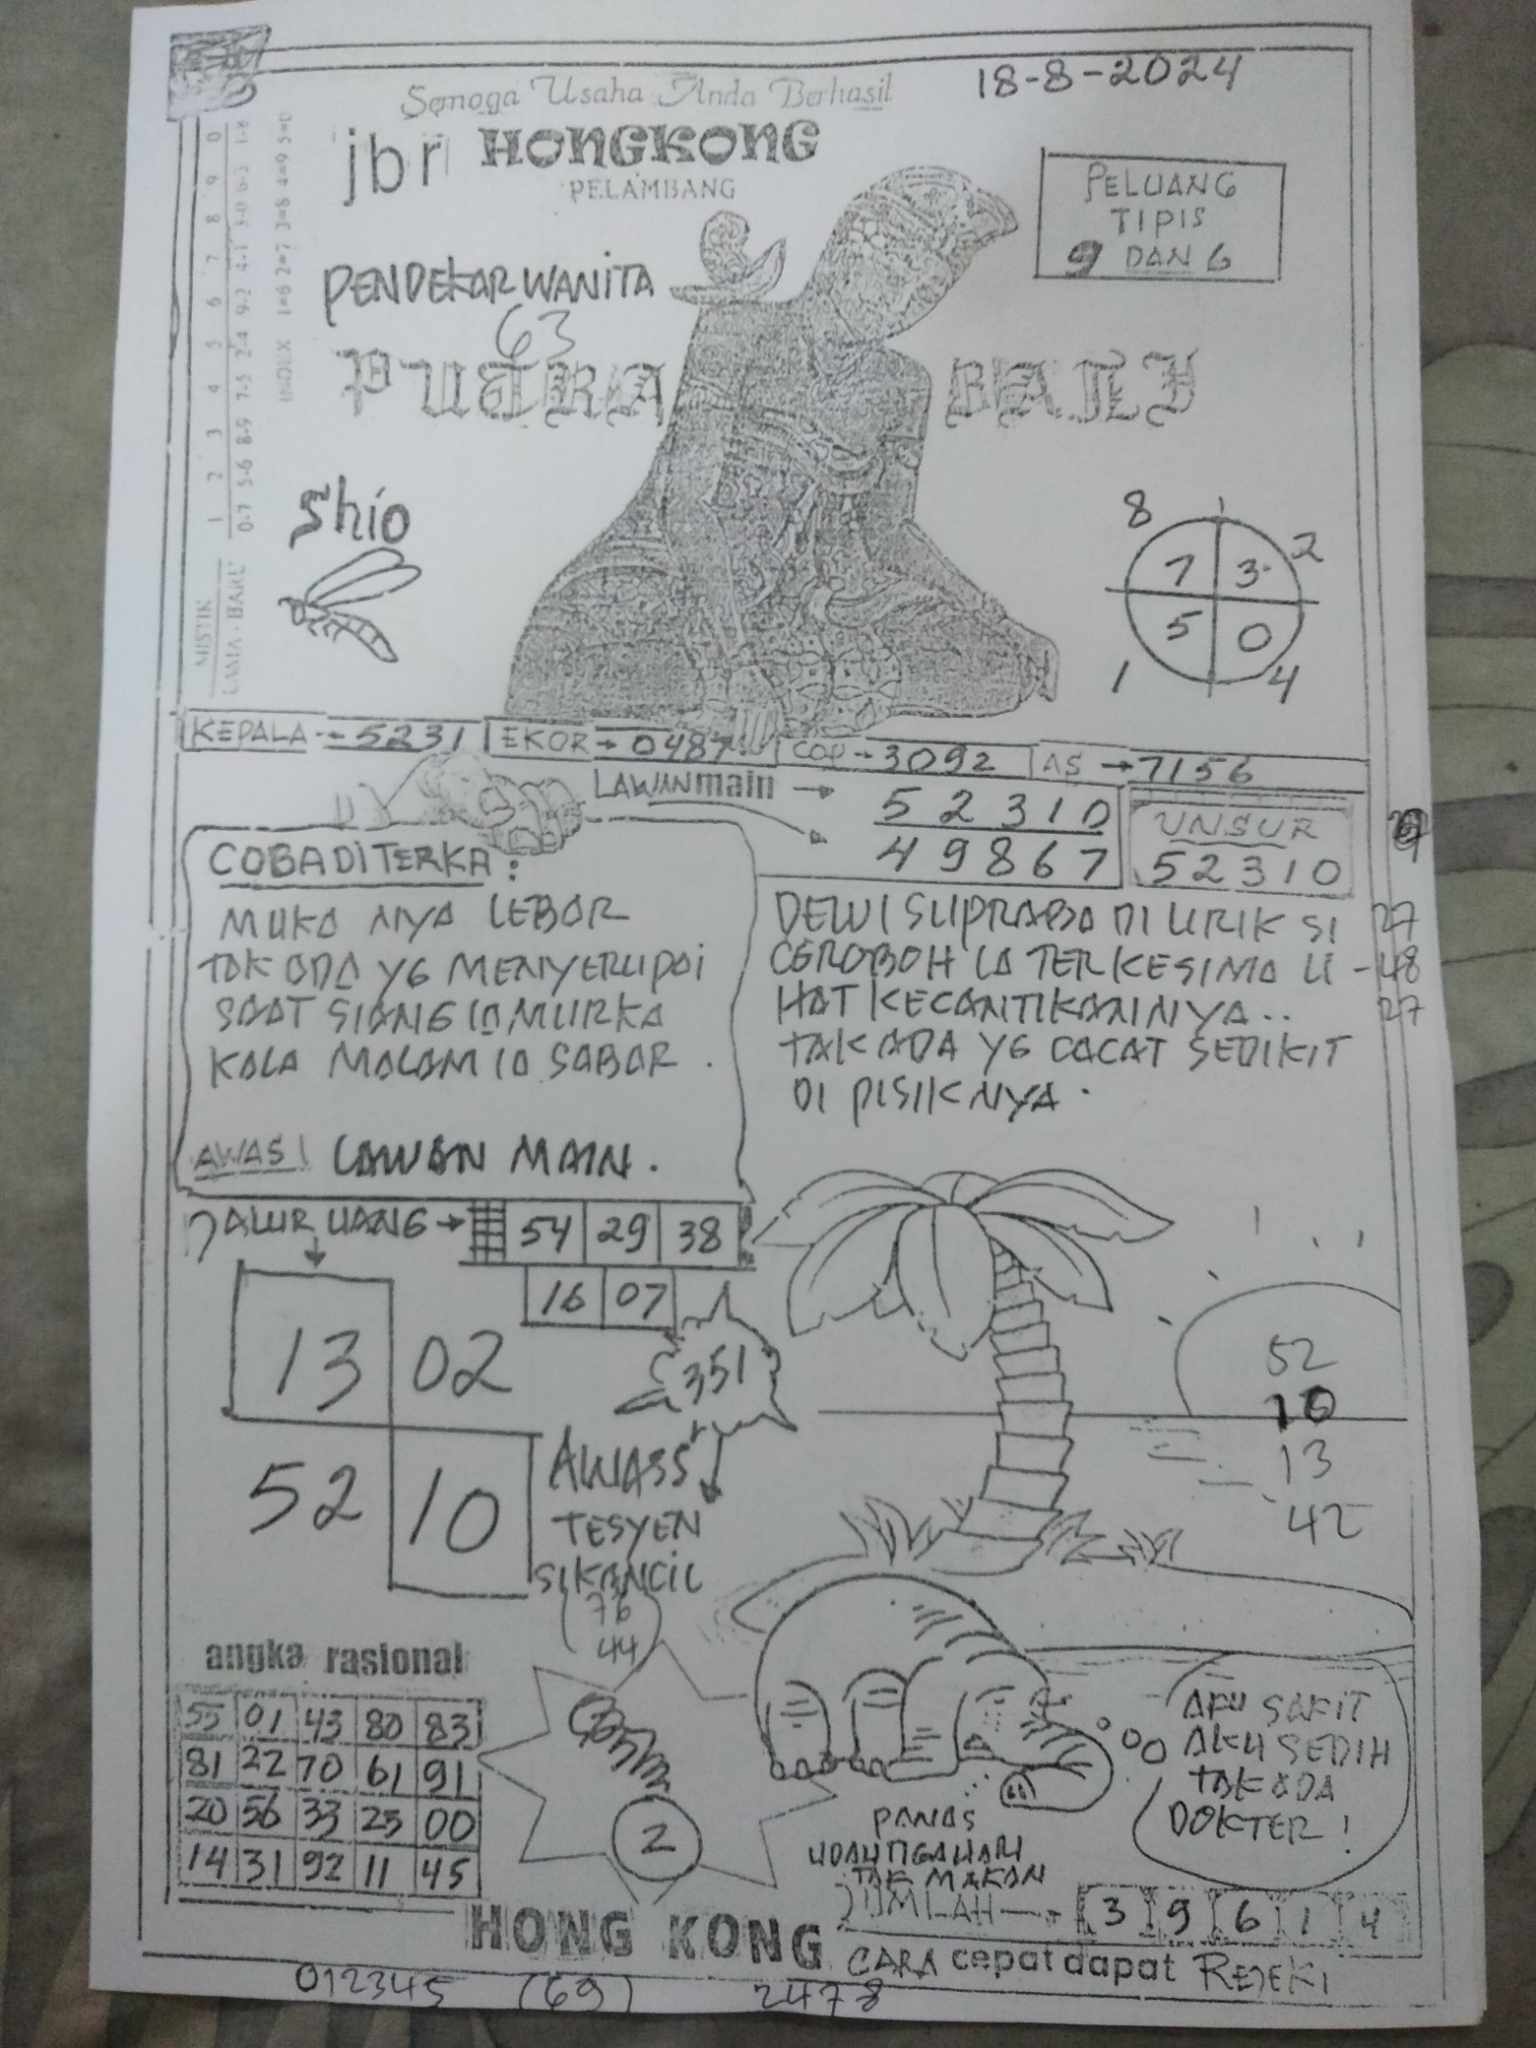 18-8-2024
Semoga Usaha Anda Berhasil
jbr HONGKONG
PELAMBANG
PELUANG
TIPIS
9 DAN 6
PENDEKAR WANITA
63
Shio
8 1 2
7 3
5 0
1 4
MISTIK
LAMA - BARU
1 2 3 4 5 6 7 8 9 0
0-7 5-6 8-9 7-5 2-4 9-2 4-1 3-0 6-3 1-8
INDEX 1=6 2=7 3=8 4=9 5=0
KEPALA 5231 EKOR → 0487 COP → 3092 AS → 7156
LAWAN main → 52310
49867
UNSUR
52310
COBA DITERKA :
MUKA NYA LEBAR
TAK ADA YG MENYERUPAI
SAAT SIANG IA MURKA
KALA MALAM IA SABAR .
AWAS! LAWAN MAIN .
DEWI SUPRABA DI LIRIK SI 27
CEROBOH IA TERKESIMA LI - 48
HAT KECANTIKANNYA .. 27
TAK ADA YG CACAT SEDIKIT
DI PISIKNYA .
JALUR UANG → 54 29 38
16 07
13 02
52 10
351
AWASS
TESYEN
SIKANCIL
76
44
52
10
13
42
angka rasional
55 01 43 80 83
81 22 70 61 91
20 56 33 23 00
14 31 92 11 45
2
AKU SAKIT
AKU SEDIH
TAK ADA
DOKTER !
PANAS
UDAH TIGA HARI
TAK MAKAN
JUMLAH → 3 9 6 1 4
HONG KONG
CARA cepat dapat REJEKI
012345 (69) 2478